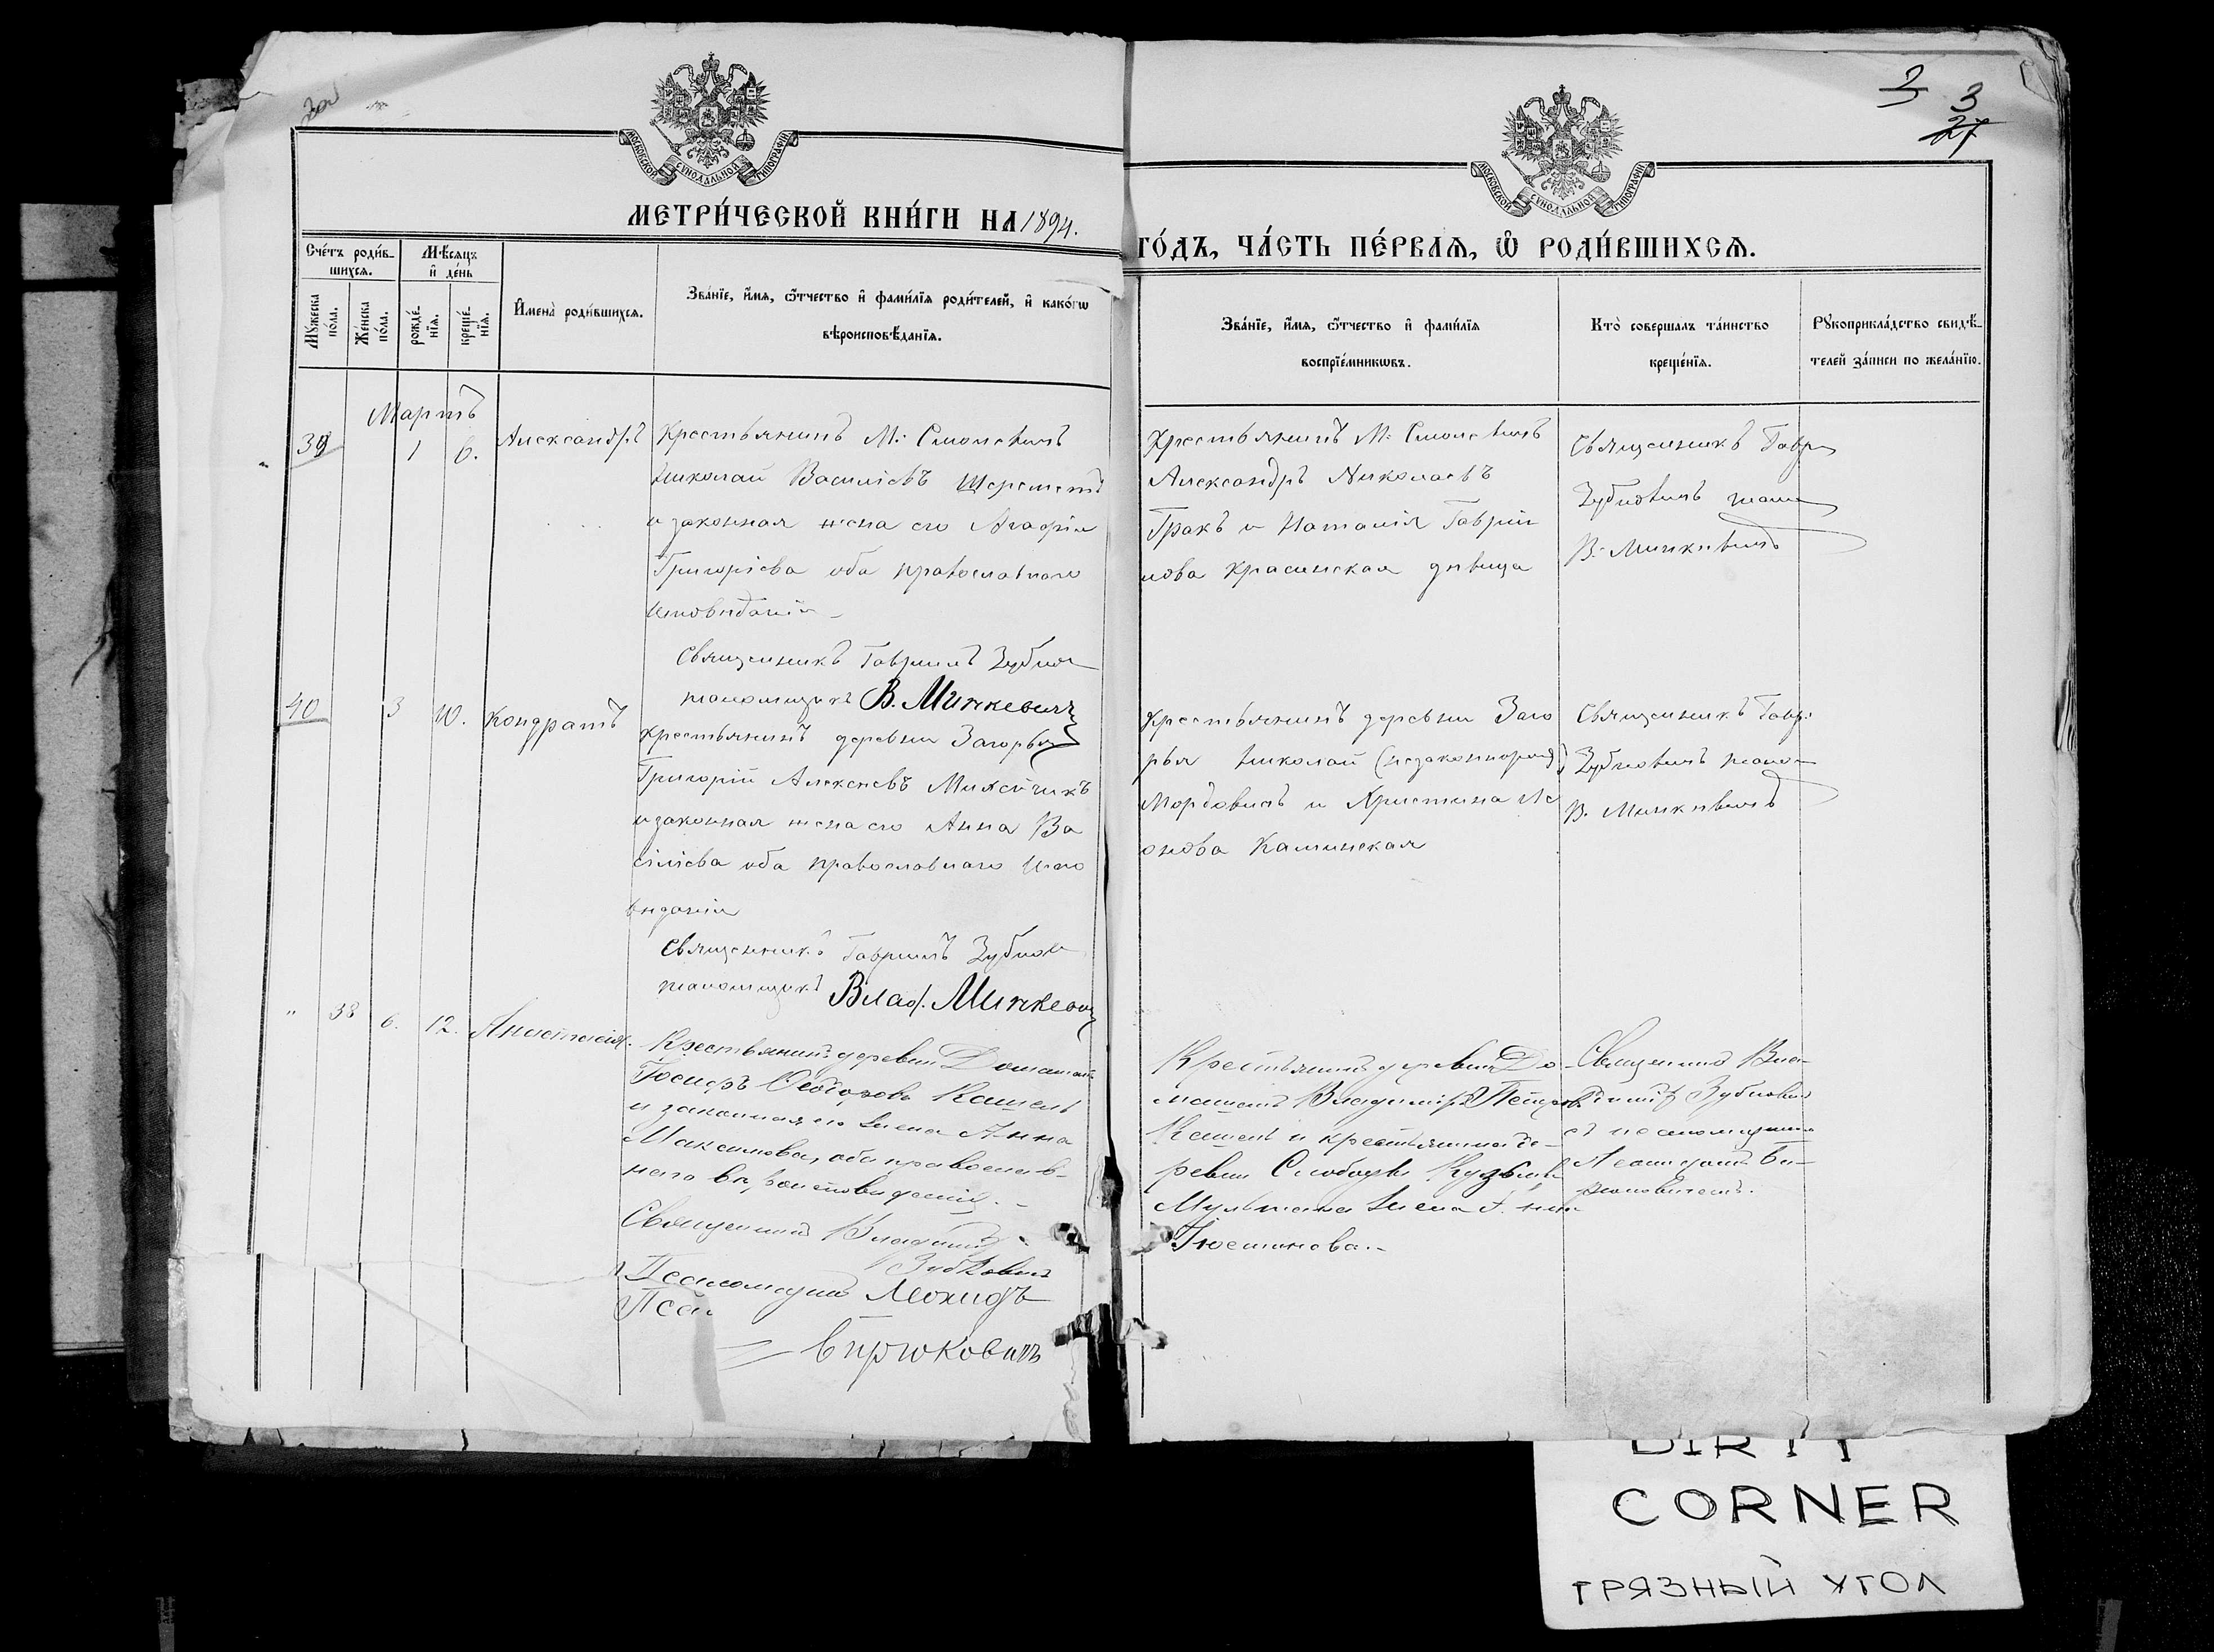 2
3
27
МОСКОВСКОЙ СУНОДАЛЬНОЙ ТИПОГРАФІИ
МОСКОВСКОЙ СУНОДАЛЬНОЙ ТИПОГРАФІИ
МЕТРИ́ЧЕСКОЙ КНИ́ГИ НА 1894.
ГО́ДЪ, ЧА́СТЬ ПЕ́РВАЯ, Ѡ҆ РОДИ́ВШИХСЯ.
Сче́тъ роди́в-
шихся.
Мѣсяцъ
и҆ де́нь
Мꙋ́жеска
по́ла.
Же́нска
по́ла.
рожде́-
нїѧ.
креще́-
нїѧ.
И҆мена̀ роди́вшихся.
Зва́нїе, и҆́мя, ѻ҆́тчество и҆ фами́лїя роди́телей, и҆ како́гѡ
вѣроисповѣ́данїя.
Зва́нїе, и҆́мя, ѻ҆́тчество и҆ фами́лїя
воспрїе́мникѡвъ.
Кто̀ совершалъ та́инство
креще́нїя.
Рꙋкоприкла́дство свидѣ́-
телей за́писи по жела́нїю.
Мартъ
39 1 6. Александръ
Крестьянинъ М. Смолевичъ
Николай Василіевъ Шереметъ
и законная жена его Агафія
Григоріева оба православного
исповѣданія
Священникъ Гавриилъ Зубков
псаломщикъ В. Мичкевичъ
Крестьянинъ М. Смолевичъ
Александръ Николаевъ
Гракъ и Наталія Гаврии
лова Красинская дѣвица
Священникъ Гавр
Зубковичъ псалм
В. Мичкевичъ
40 3 10. Кондратъ
Крестьянинъ деревни Загорья
Григорій Алексѣевъ Михейчикъ
и законная жена его Анна Ва
силіева оба православнаго испо
вѣданія
Священникъ Гавриилъ Зубков
псаломщикъ Влад. Мичкевич
Крестьянинъ деревни Заго
рья Николай (незаконнорожд)
Мордовичъ и Христина Ле
онова Каминская
Священникъ Гавр.
Зубковичъ псало
В. Мичкевичъ
" 38 6. 12. Анастасія.
Крестьянинъ деревни Домашан
Іосифъ Ѳеодорова Кашель
и законная его жена Анна
Максимова, оба православ-
наго вѣроисповѣданія. -
Священникъ Владиміръ
Зубковичъ
Псаломщикъ Леонидъ
Псал
Бирюковичъ
Крестьянинъ деревни До-
машанъ Владиміръ Петровъ
Кашель и крестьянина де-
ревни Слободы Кузьмы
Мультана жена Анна
Іюстинова. -
Священникъ Вла-
диміръ Зубкович
съ псаломщикомъ
Леонидомъ Би-
рюковичемъ.
DIRTY
CORNER
ГРЯЗНЫЙ УГОЛ